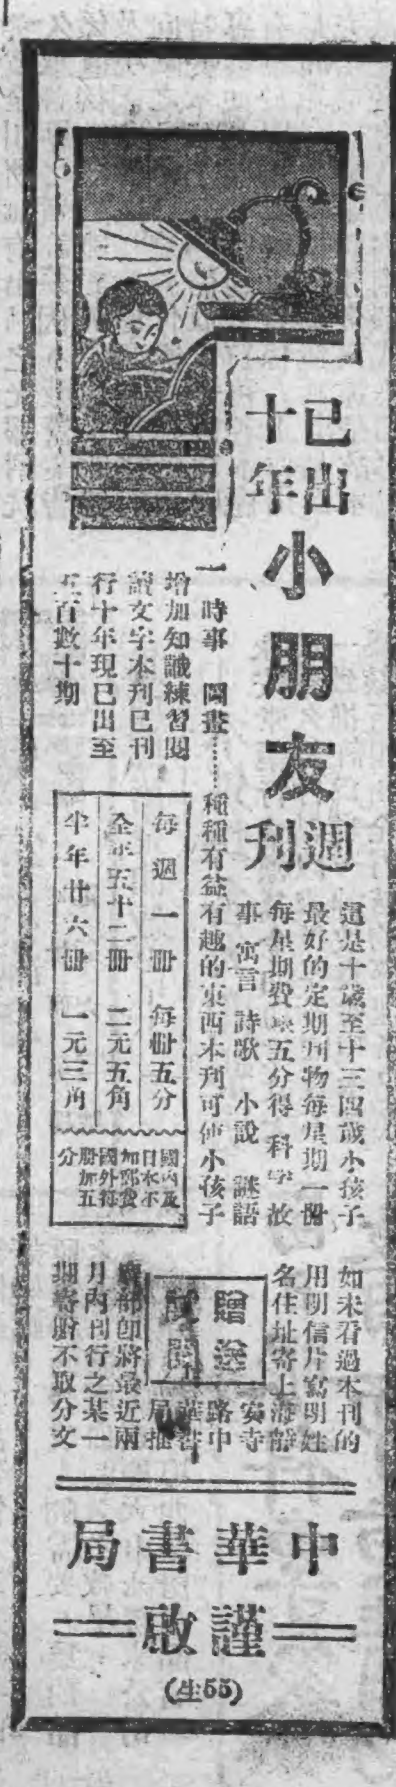 已出
十年
小朋友
週刊
這是十歲至十三四歲小孩子
最好的定期刊物每星期一冊
每星期費大洋五分得 科學故
事 寓言 詩歌 小說 謎語
一 時事 圖畫……種種有益有趣的東西本刊可使小孩子
增加知識練習閱
讀文字本刊已刊
行十年現已出至
五百數十期
每週一冊 每冊五分
全年五十二冊 二元五角
半年廿六冊 一元三角
國內及
日本不
加郵費
國外每
冊加五
分
如未看過本刊的
用明信片寫明姓
名住址寄上海靜
安寺
路中
華書
局推
廣部即將最近兩
月內刊行之某一
期寄贈不取分文
贈送
中華書局
謹啟
(生55)